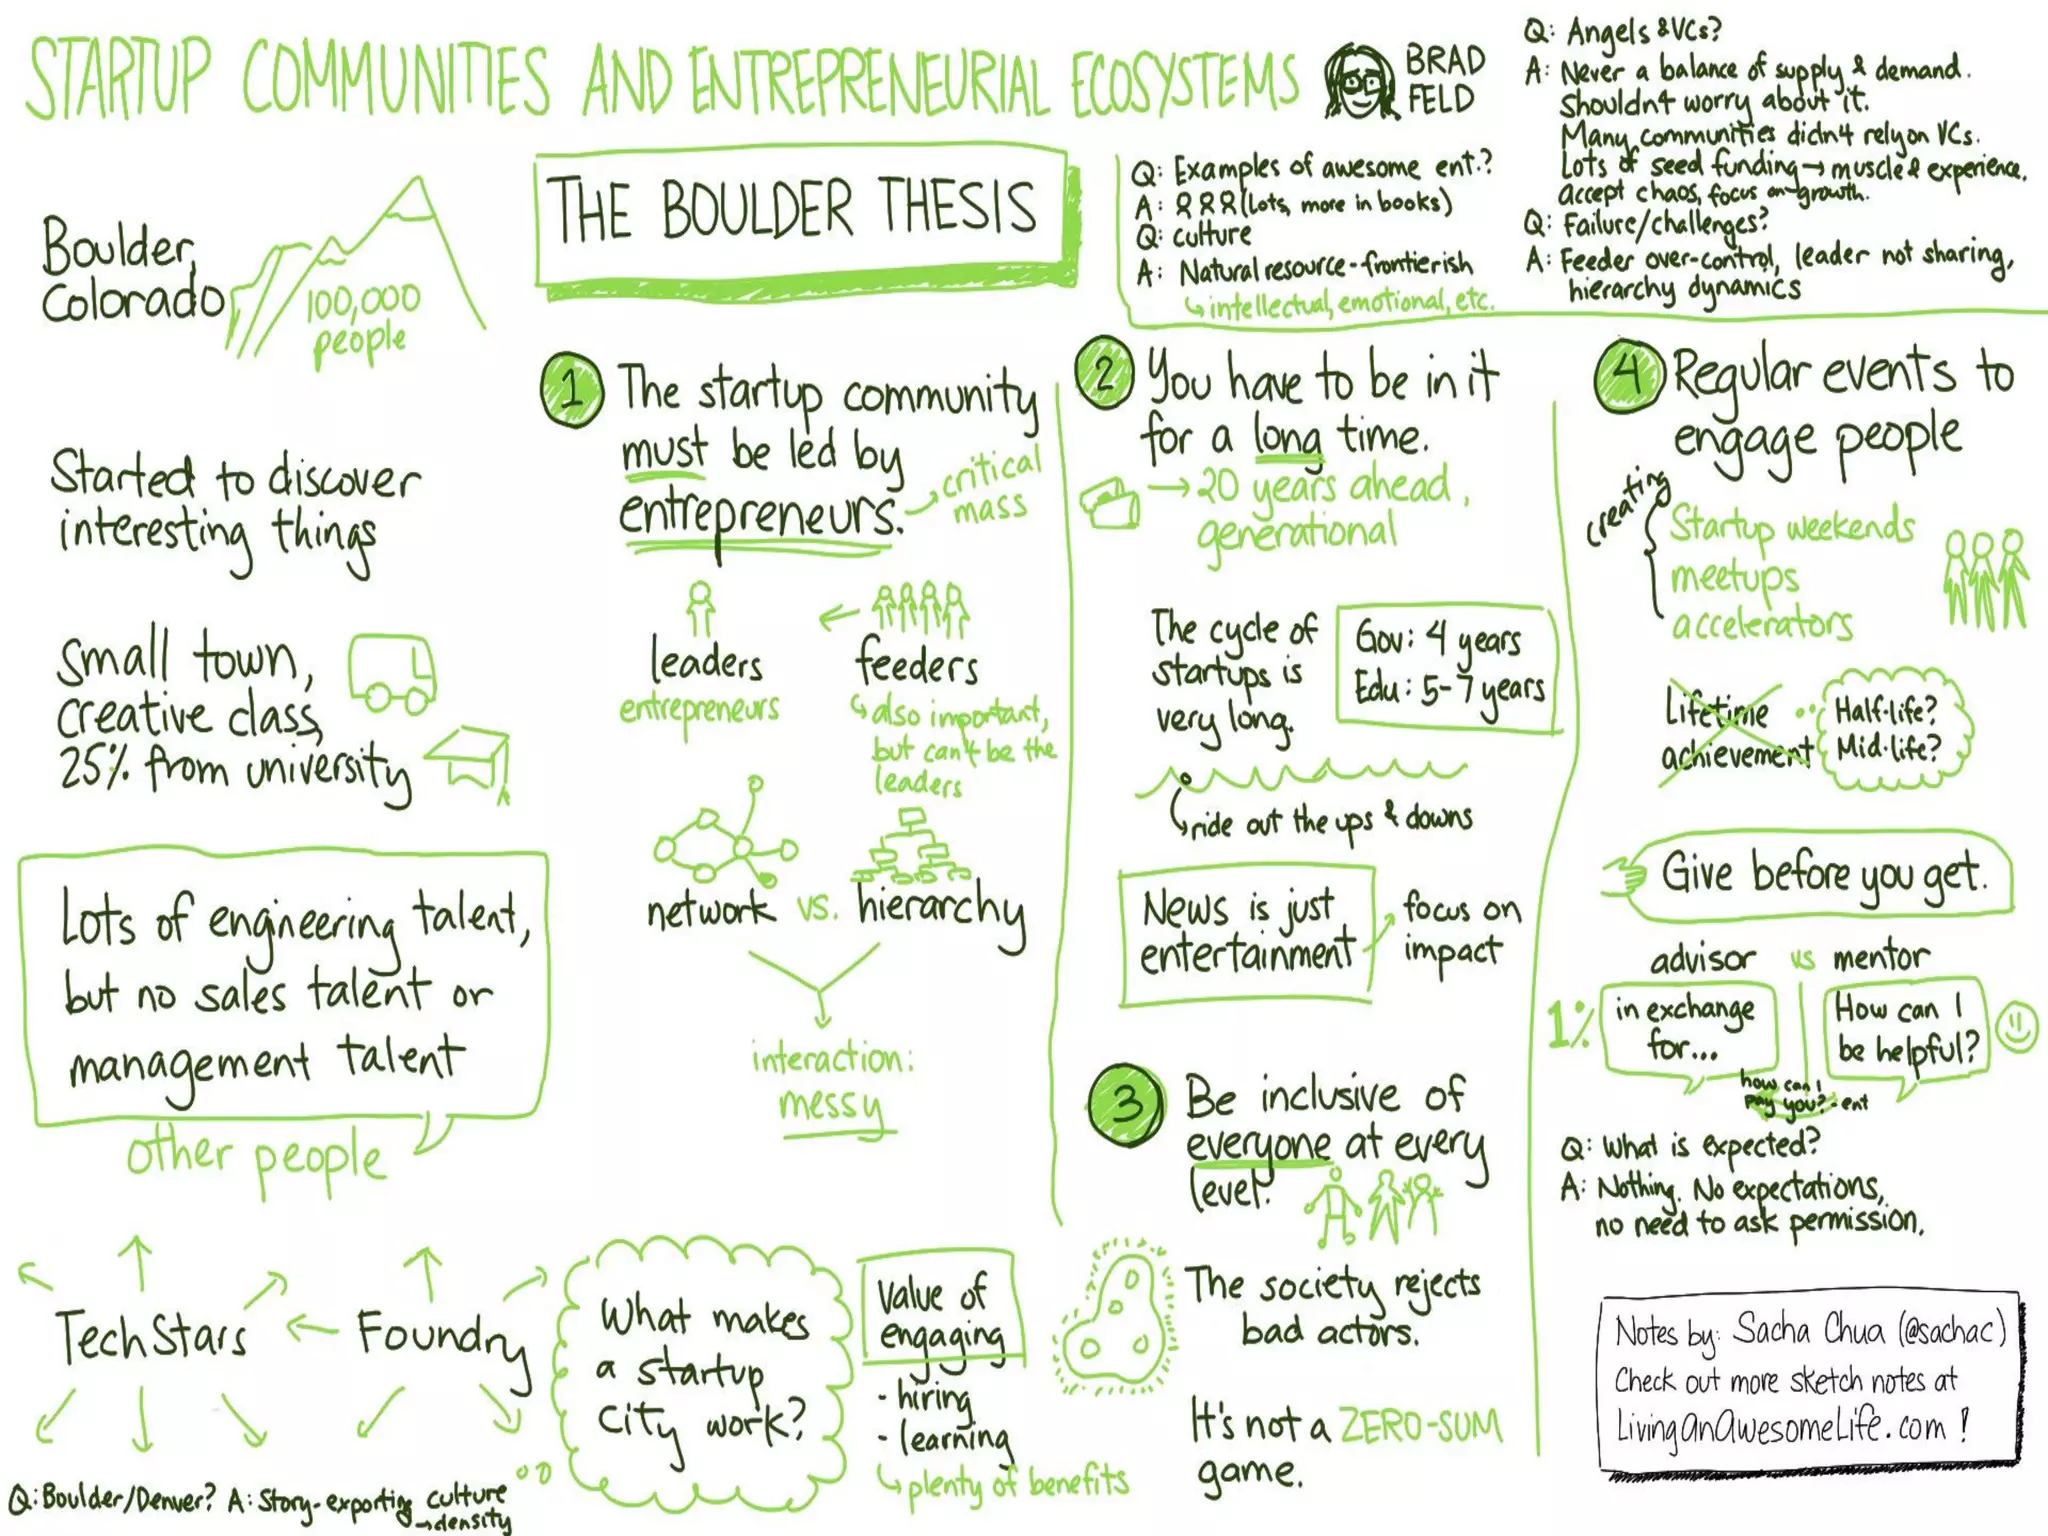 STARTUP COMMUNITIES AND ENTREPRENEURIAL ECOSYSTEMS
BRAD
FELD
Boulder,
Colorado
100,000
people
Started to discover
interesting things
Small town,
creative class,
25% from university
Lots of engineering talent,
but no sales talent or
management talent
other people
TechStars
Foundry
Q: Boulder/Denver? A: Story-exporting culture
→density
What makes
a startup
city work?
Value of
engaging
- hiring
- learning
plenty of benefits
THE BOULDER THESIS
1
The startup community
must be led by
entrepreneurs.
critical
mass
leaders
entrepreneurs
feeders
also important,
but can't be the
leaders
network vs. hierarchy
interaction:
messy
Q: Examples of awesome ent.?
A: (lots, more in books)
Q: culture
A: Natural resource-frontierish
intellectual, emotional, etc.
Q: Angels & VCs?
A: Never a balance of supply & demand.
Shouldn't worry about it.
Many communities didn't rely on VCs.
Lots of seed funding → muscle & experience.
accept chaos, focus on growth.
Q: Failure/challenges?
A: Feeder over-control, leader not sharing,
hierarchy dynamics
2
You have to be in it
for a long time.
→ 20 years ahead,
generational
The cycle of
startups is
very long.
Gov: 4 years
Edu: 5-7 years
ride out the ups & downs
News is just
entertainment
focus on
impact
3
Be inclusive of
everyone at every
level.
The society rejects
bad actors.
It's not a ZERO-SUM
game.
4
Regular events to
engage people
creating
Startup weekends
meetups
accelerators
Lifetime
achievement
Half-life?
Mid-life?
Give before you get.
advisor vs mentor
1%
in exchange
for...
How can I
be helpful?
how can I
pay you? - ent
Q: What is expected?
A: Nothing. No expectations,
no need to ask permission.
Notes by: Sacha Chua (@sachac)
Check out more sketch notes at
LivingAnAwesomeLife.com!